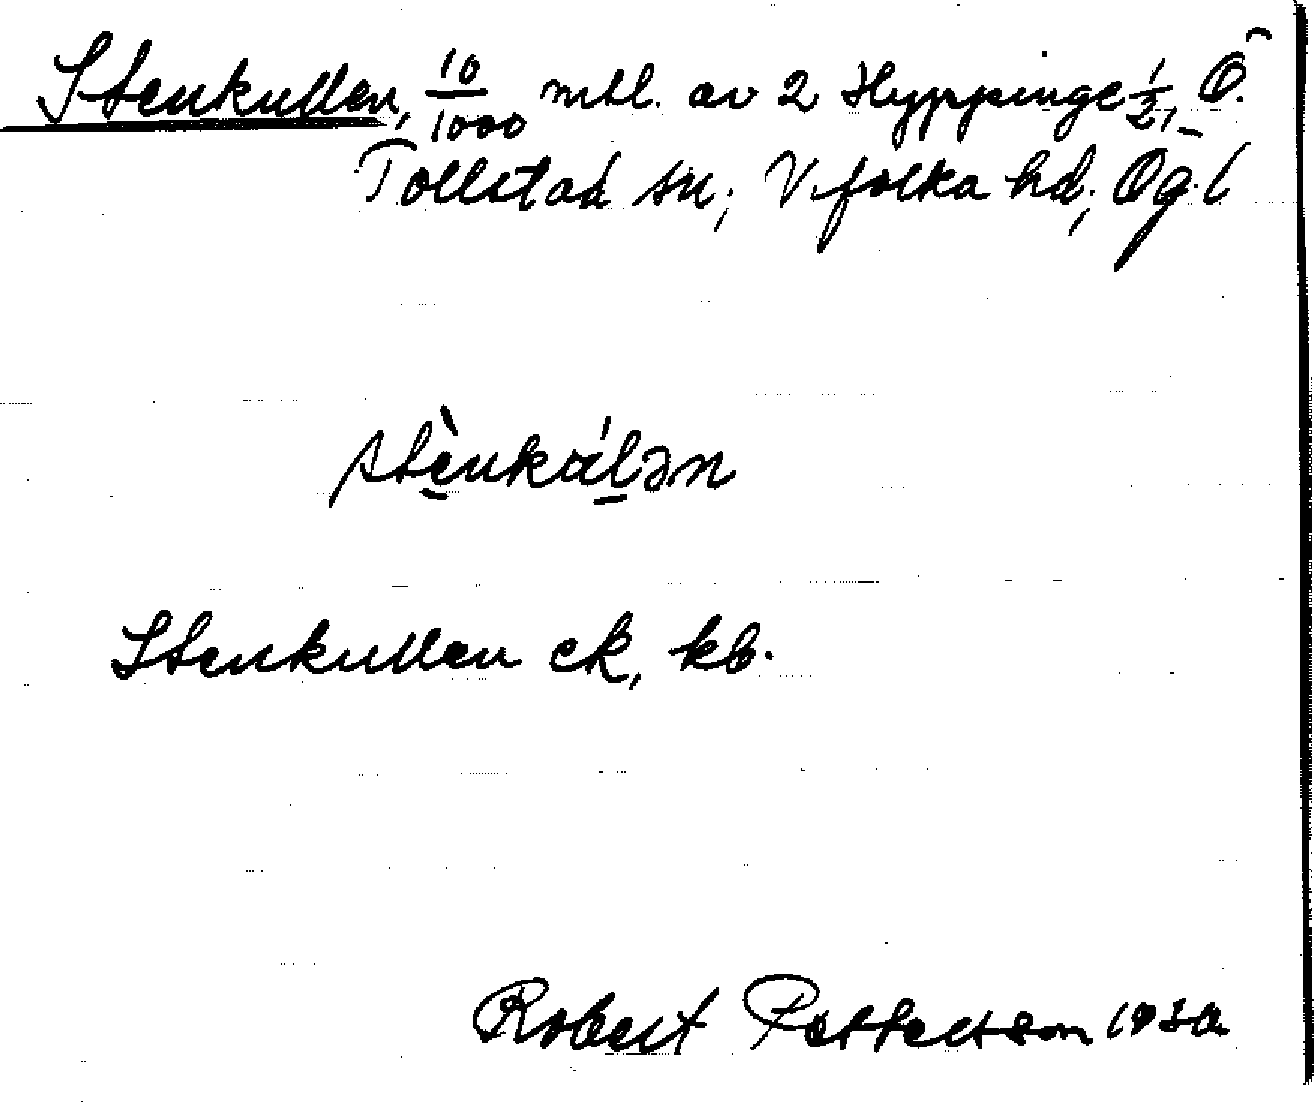 Stenkullen, 10/1000 mtl. av 2 Hyppinge 1/2, Ö.
Tollstad sn; V. folka hd; Ög. l
stènkálən
Stenkullen ek, kb.
Robert Pettersson